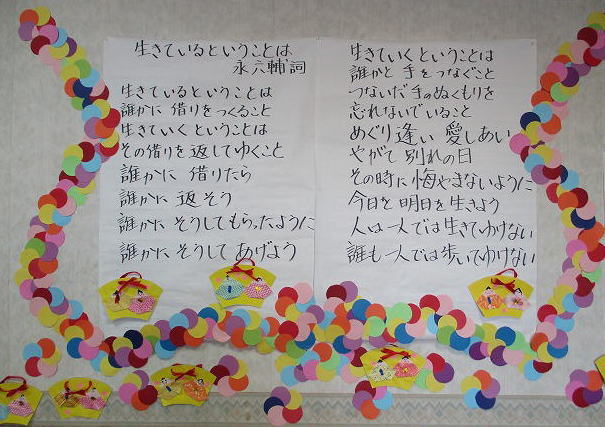 生きているということは
永六輔 詞
生きているということは
誰かに 借りをつくること
生きていくということは
その借りを 返してゆくこと
誰かに 借りたら
誰かに 返そう
誰かに そうしてもらったように
誰かに そうしてあげよう
生きていくということは
誰かと 手をつなぐこと
つないだ手のぬくもりを
忘れないでいること
めぐり逢い 愛しあい
やがて 別れの日
その時に 悔やまないように
今日を 明日を 生きよう
人は一人では生きてゆけない
誰も 一人では歩いてゆけない